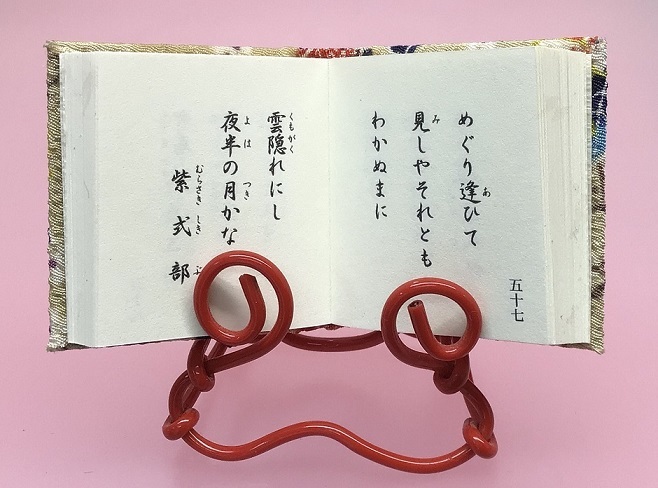 五十七
めぐり逢ひて
見しやそれとも
わかぬまに
雲隠れにし
夜半の月かな
紫式部